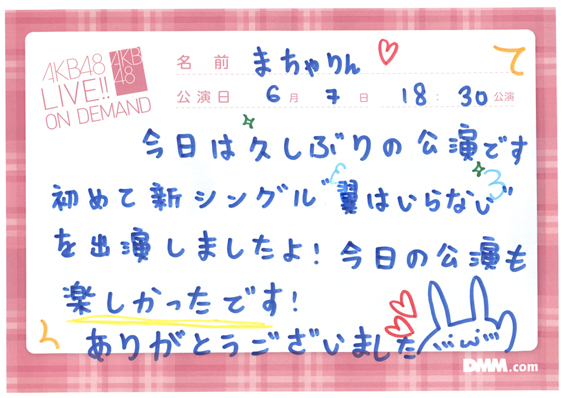 AKB48
LIVE!!
ON DEMAND
AKB
48
名前 まちゃりん
公演日 6月7日 18:30公演
今日は久しぶりの公演です
初めて新シングル"翼はいらない"
を出演しましたよ!今日の公演も
楽しかったです!
ありがとうございました
DMM.com